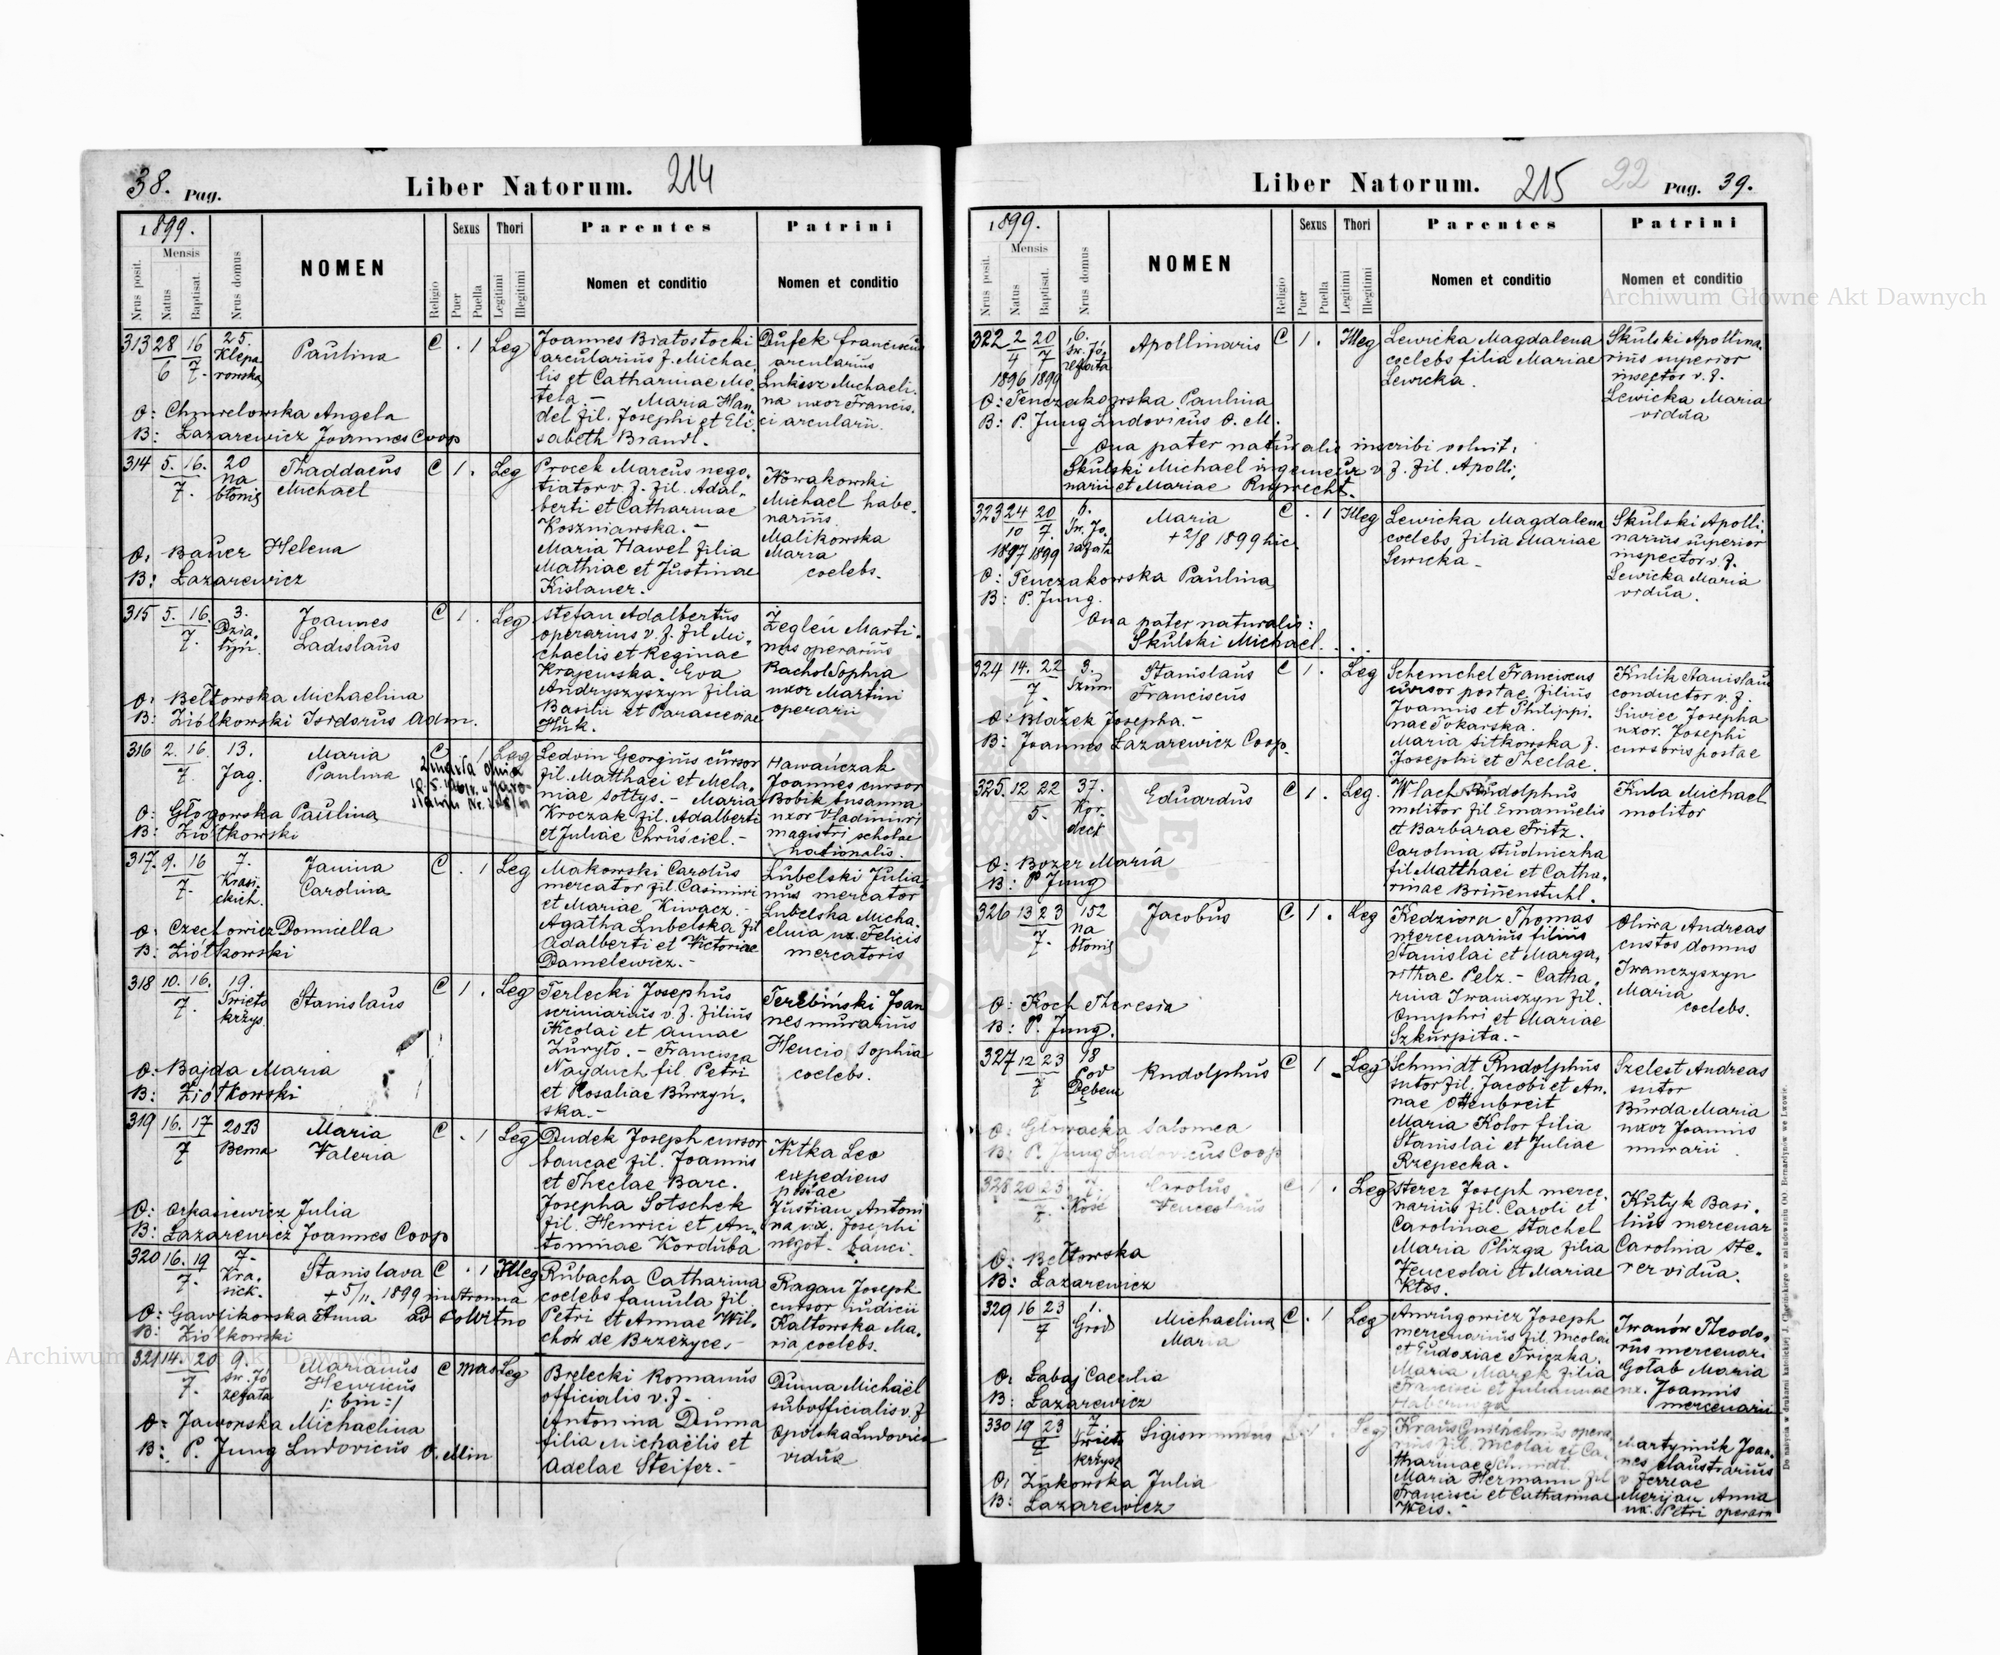 38. Pag.
Liber Natorum. 214
1899.
Nrus posit.
Mensis
Natus
Baptisat.
Nrus domus
NOMEN
Religio
Sexus
Puer
Puella
Thori
Legitimi
Illegitimi
Parentes
Nomen et conditio
Patrini
Nomen et conditio
313 28/6 16/7.
25. Klepa
rowska
Paulina
C . 1 Leg
Joannes Białostocki
arcularius f. Michae
lis et Catharinae Me
tela.- Maria Han
del fil. Josephi et Eli
sabeth Brandl.
Dufek Franciscus
arcularius
Lukiesz Michaeli
na uxor Francis.
ci arcularii.
O: Chmrelowska Angela
B: Łazarewicz Joannes Coop
314 5. 16. 7.
20
na
błonie
Thaddaeus
Michael
C 1. Leg
Procek Marcus nego,
tiator v. f. fil. Adal,
berti et Catharinae
Koszniawska.-
Maria Hawel filia
Mathiae et Justinae
Kislauer.
Nowakowski
Michael habe.
narius.
Malikowska
Maria
coelebs.
O: Bauer Helena
B: Łazarewicz
315 5. 16. 7.
3.
Dzia.
łyń.
Joannes
Ladislaus
C 1. Leg
Stefan Adalbertus
operarius v. f. fil Mi,
chaelis et Reginae
Krajewska. Eva
Andryszyszyn filia
Basilii et Parasceviae
Huk.
Żegleń Marti.
nus operarius
Rachol Sophia
uxor Martini
operarii
O: Bełtowska Michaelina
B: Ziółkowski Isidorus adm.
316 2. 16. 7.
13.
Jag.
Maria
Paulina
C . 1 Leg
Zmarła dnia
Ledvin Georgius cursor
fil. Matthaei et Mela,
niae Sołtys.- Maria
Kroczak fil. Adalberti
et Juliae Chruściel.-
Hawańczak
Joannes cursor
Bobik Susanna
uxor Vladimiri
magistri scholae
nationalis.
O: Głogowska Paulina
B: Ziółkowski
317. 9. 16 7.
7.
Krasi.
ckich.
Janina
Carolina
C . 1 Leg
Makowski Carolus
mercator fil. Casimiri
et Mariae Kiwacz.-
Agatha Lubelska fil
Adalberti et Victoriae
Danielewicz.-
Lubelski Julia
nus mercator
Lubelska Micha.
elina ux. Felicis
mercatoris
O: Czechowicz Domicella
B: Ziółkowski
318 10. 16. 7.
19.
Święto
krzys.
Stanislaus
C 1. Leg
Terlecki Josephus
scriniarius v. f. filius
Nicolai et Annae
Zuryło.- Francisca
Nayduch fil. Petri
et Rosaliae Burzyń.
ska.-
Terebiński Joan
nes murarius
Hencio Sophia
coelebs.
O: Bajda Maria
B: Ziółkowski
319 16. 17 7
20B
Bema
Maria
Valeria
C . 1 Leg
Dudek Joseph cursor
bancae fil. Joannis
et Theclae Barc.
Josepha Sotschek
fil. Henrici et An,
toninae Korduba
Witka Leo
expediens
postae
Justian Antoni
na ux. Josephi
negot. banci.
O: Julia
B: Łazarewicz Joannes Coop
320 16. 19 7.
7.
Kra.
sick.
Stanislava
+ 5/11. 1899
C . 1 Illeg
Rubacha Catharina
coelebs famula fil
Petri et Annae Wil,
chów de Brzeżyce.-
Ragan Joseph
cursor iudicii
Kałtowska Ma.
ria coelebs.
O: Gawlikowska Anna
B: Ziółkowski
321 14. 20 7.
9.
Św. Jó
zefata
Marianus
Henricus
/: bin :/
C Mas Leg
Brelecki Romanus
officialis v. f.
Antonina Duma
filia Michaëlis et
Adelae Steifer.-
Duma Michaël
subofficialis v. f
Opolska Ludovica
vidua
O: Jaworska Michaelina
B: P. Jung Ludovicus O. Min
Liber Natorum. 215
22 Pag. 39.
1899.
Nrus posit.
Mensis
Natus
Baptisat.
Nrus domus
NOMEN
Religio
Sexus
Puer
Puella
Thori
Legitimi
Illegitimi
Parentes
Nomen et conditio
Patrini
Nomen et conditio
322 2/4 20/7
1896 1899
6.
Św. Jó.
zefata
Apollinaris
C 1. Illeg
Lewicka Magdalena
coelebs filia Mariae
Lewicka.
Skulski Apollina.
rius superior
inspector v. f.
Lewicka Maria
vidua
O: Tenczakowska Paulina
B: P. Jung Ludovicus O. M.
- Qua pater naturalis inscribi voluit:
Skulski Michael ingenieur v. f. fil. Apolli;
narii et Mariae Ruprecht.
323 24/10 20/7.
1897 1899
6.
Św. Jo.
zafata
Maria
+ 2/8 1899 hic.
C . 1 Illeg
Lewicka Magdalena
coelebs filia Mariae
Lewicka -
Skulski Apolli.
narius superior
inspector v. f.
Lewicka Maria
vidua.
O: Tenczakowska Paulina
B: P. Jung.
Qua pater naturalis:
Skulski Michael. . .
324 14. 22 7.
3.
Szum
Stanislaus
Franciscus
C 1. Leg
Schemchel Franciscus
cursor postae filius
Joannis et Philippi.
nae Tokarska.
Maria Sitkowska f.
Josephi et Theclae.
Kulik Stanislaus
conductor v. f.
Siwiec Josepha
uxor. Josephi
cursoris postae
O: Błażek Josepha.-
B: Joannes Łazarewicz Coop.
325. 12 22 5.
37.
Kor.
deck
Eduardus
C 1. Leg.
Wlach Rudolphus
molitor fil Emanuelis
et Barbarae Fritz.
Carolina Studniczka
fil. Matthaei et Catha.
rinae Brinenstuhl.
Kuba Michael
molitor
O: Bozer Maria
B: P Jung
326 13 23 7.
152
na
błonie
Jacobus
C 1. Leg
Kedziora Thomas
mercenarius filius
Stanislai et Marga,
rithae Pelz.- Catha,
rina Iwaniszyn fil.
Onuphri et Mariae
Szkurpita.-
Oliwa Andreas
custos domus
Iwanczyszyn
Maria
coelebs.
O: Koch Theresia
B: P. Jung.
327 12 23 7
18
Pod
Dębem
Rudolphus
C 1. Leg
Schmidt Rudolphus
sutor fil. Jacobi et An.
nae Ottenbreit
Maria Kolor filia
Stanislai et Juliae
Rzepecka.
Szelest Andreas
sutor
Burda Maria
uxor Joannis
murarii
O: Głowacka Salomea
B: P. Jung Ludovicus Coop
328 20 23 7
7
Carolus
Venceslaus
C 1. Leg
Sterer Joseph merce,
narius fil. Caroli et
Carolinae Stachel
Maria Plizga filia
Venceslai et Mariae
Kłos.
Kutyk Basi.
lius mercenar
Carolina Ste.
rer vidua.
O: Bełtowska
B: Łazarewicz
329 16 23 7
1.
Grod
Michaelina
Maria
C . 1 Leg
Anrugowicz Joseph
mercenarius fil. Nicolai
et Eudoxiae Triczka.
Maria Marek filia
Francisci et Julianae
Iwanów Theodo,
rus mercenari
Gołab Maria
ux. Joannis
mercenarii
O: Łabaj Caecilia
B: Łazarewicz
330 19 23 7
7
Święto
krzys
Sigismundus
1. Leg
Kraus Guilhelmus opera
rius fil. Nicolai et Ca.
tharinae Schmidt.
Maria Hermann fil
Francisci et Catharinae
Weis.-
Martyniuk Joan.
nes claustrarius
v ferreae
Merijan Anna
ux. Petri operarii
O: Żukowska Julia
B: Łazarewicz
Archiwum Główne Akt Dawnych
Archiwum Główne Akt Dawnych